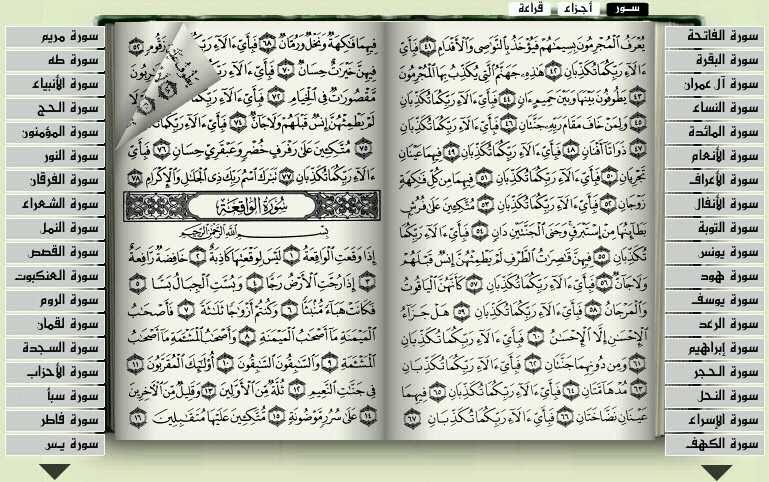 سور
أجزاء
قراءة
سورة الفاتحة
سورة البقرة
سورة آل عمران
سورة النساء
سورة المائدة
سورة الأنعام
سورة الأعراف
سورة الأنفال
سورة التوبة
سورة يونس
سورة هود
سورة يوسف
سورة الرعد
سورة إبراهيم
سورة الحجر
سورة النحل
سورة الإسراء
سورة الكهف
يعرف المجرمون بسيماهم فيؤخذ بالنواصي والأقدام ٤١ فبأي
ءالاء ربكما تكذبان ٤٢ هذه جهنم التي يكذب بها المجرمون
٤٣ يطوفون بينها وبين حميم ءان ٤٤ فبأي ءالاء ربكما تكذبان
٤٥ ولمن خاف مقام ربه جنتان ٤٦ فبأي ءالاء ربكما تكذبان
٤٧ ذواتا أفنان ٤٨ فبأي ءالاء ربكما تكذبان ٤٩ فيهما عينان
تجريان ٥٠ فبأي ءالاء ربكما تكذبان ٥١ فيهما من كل فاكهة
زوجان ٥٢ فبأي ءالاء ربكما تكذبان ٥٣ متكئين على فرش
بطائنها من إستبرق وجنى الجنتين دان ٥٤ فبأي ءالاء ربكما
تكذبان ٥٥ فيهن قاصرات الطرف لم يطمثهن إنس قبلهم
ولا جان ٥٦ فبأي ءالاء ربكما تكذبان ٥٧ كأنهن الياقوت
والمرجان ٥٨ فبأي ءالاء ربكما تكذبان ٥٩ هل جزاء
الإحسن إلا الإحسن ٦٠ فبأي ءالاء ربكما تكذبان
٦١ ومن دونهما جنتان ٦٢ فبأي ءالاء ربكما تكذبان
٦٣ مدهامتان ٦٤ فبأي ءالاء ربكما تكذبان ٦٥ فيهما
عينان نضاختان ٦٦ فبأي ءالاء ربكما تكذبان ٦٧
فيهما فاكهة ونخل ورمان ٦٨ فبأي ءالاء
فيهن خيرات حسان ٧٠ فبأي ءالاء
مقصورات في الخيام ٧٢ فبأي ءالاء
لم يطمثهن إنس قبلهم ولا جان ٧٤ فبأي ءالاء ربكما
٧٥ متكئين على رفرف خضر وعبقري حسان ٧٦ فبأي
ءالاء ربكما تكذبان ٧٧ تبرك اسم ربك ذي الجلال والإكرام ٧٨
سورة الواقعة
بسم الله الرحمن الرحيم
إذا وقعت الواقعة ١ ليس لوقعتها كاذبة ٢ خافضة رافعة
٣ إذا رجت الأرض رجا ٤ وبست الجبال بسا ٥
فكانت هباء منبثا ٦ وكنتم أزواجا ثلاثة ٧ فأصحاب
الميمنة ما أصحاب الميمنة ٨ وأصحاب المشئمة ما أصحاب
المشئمة ٩ والسابقون السابقون ١٠ أولئك المقربون ١١
في جنات النعيم ١٢ ثلة من الأولين ١٣ وقليل من الآخرين
١٤ على سرر موضونة ١٥ متكئين عليها متقابلين ١٦
سورة مريم
سورة طه
سورة الأنبياء
سورة الحج
سورة المؤمنون
سورة النور
سورة الفرقان
سورة الشعراء
سورة النمل
سورة القصص
سورة العنكبوت
سورة الروم
سورة لقمان
سورة السجدة
سورة الأحزاب
سورة سبأ
سورة فاطر
سورة يس